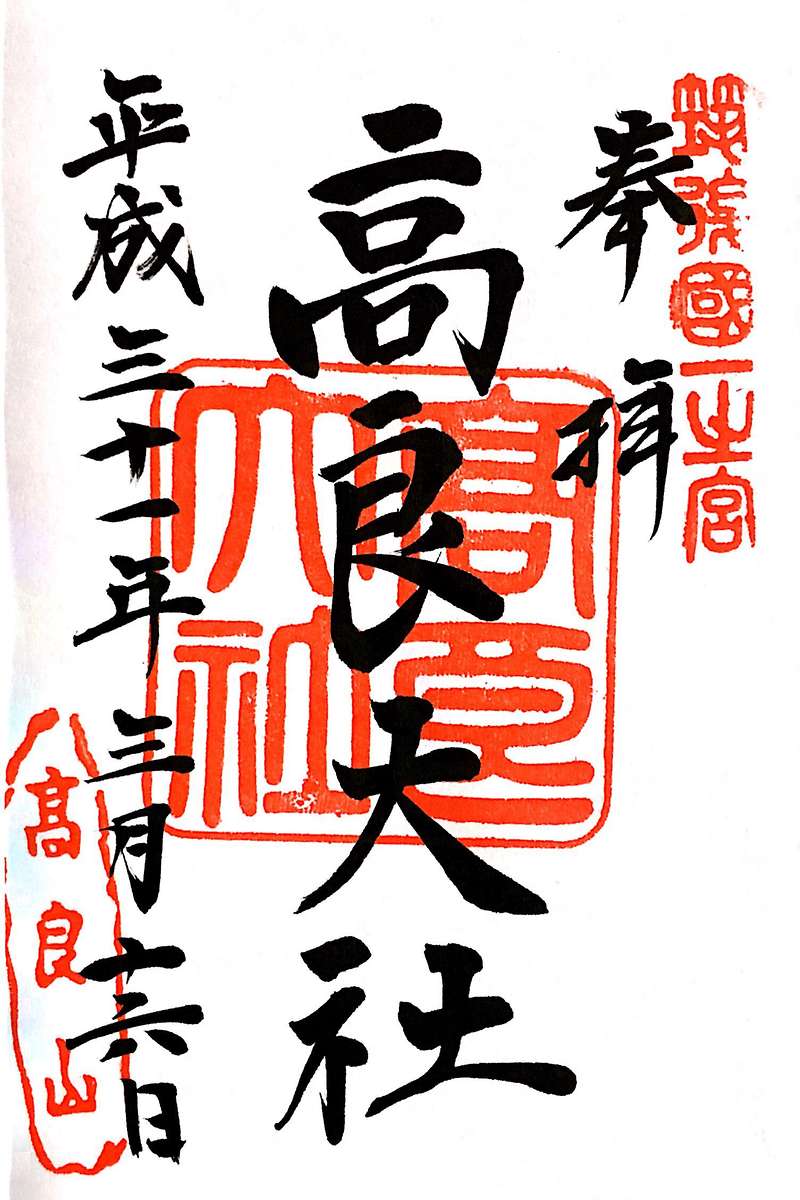 筑後國一之宮
奉拝
高良大社
高良大社
平成三十一年三月十六日
高良山